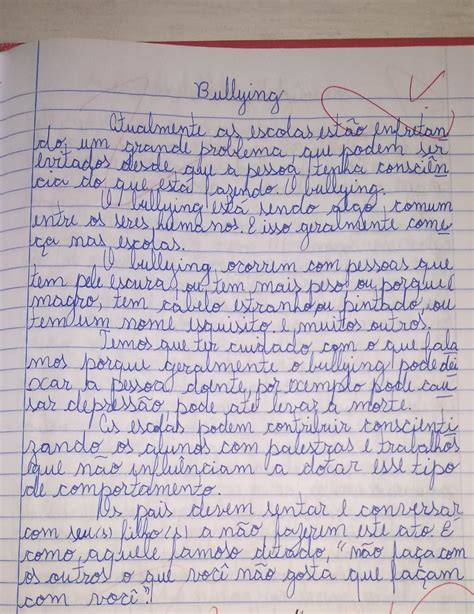 Bullying
Atualmente as escolas estão enfretan
do, um grande problema, que podem ser
evitados desde que a pessoa tenha consciên
cia do que está fazendo. O bullying.
O bullying está sendo algo comum
entre os seres humanos. E isso geralmente come
ça nas escolas.
O bullying, ocorrem com pessoas que
tem pele escura, ou tem mais peso, ou porque é
magro, tem cabelo estranho ou pintado, ou
tem um nome esquisito e muitos outros.
Temos que ter cuidado com o que fala
mos porque geralmente o bullying pode dei
xar a pessoa doente, por exemplo pode cau
sar depressão pode até levar a morte.
As escolas podem contribuir conscienti
zando os alunos com palestras e trabalhos
que não influenciam a dotar esse tipo
de comportamento.
Os pais devem sentar e conversar
com seu(s) filho(s) a não fazerem este ato. É
como, aquele famoso ditado, "não faça com
os outros o que você não gosta que façam
com você".